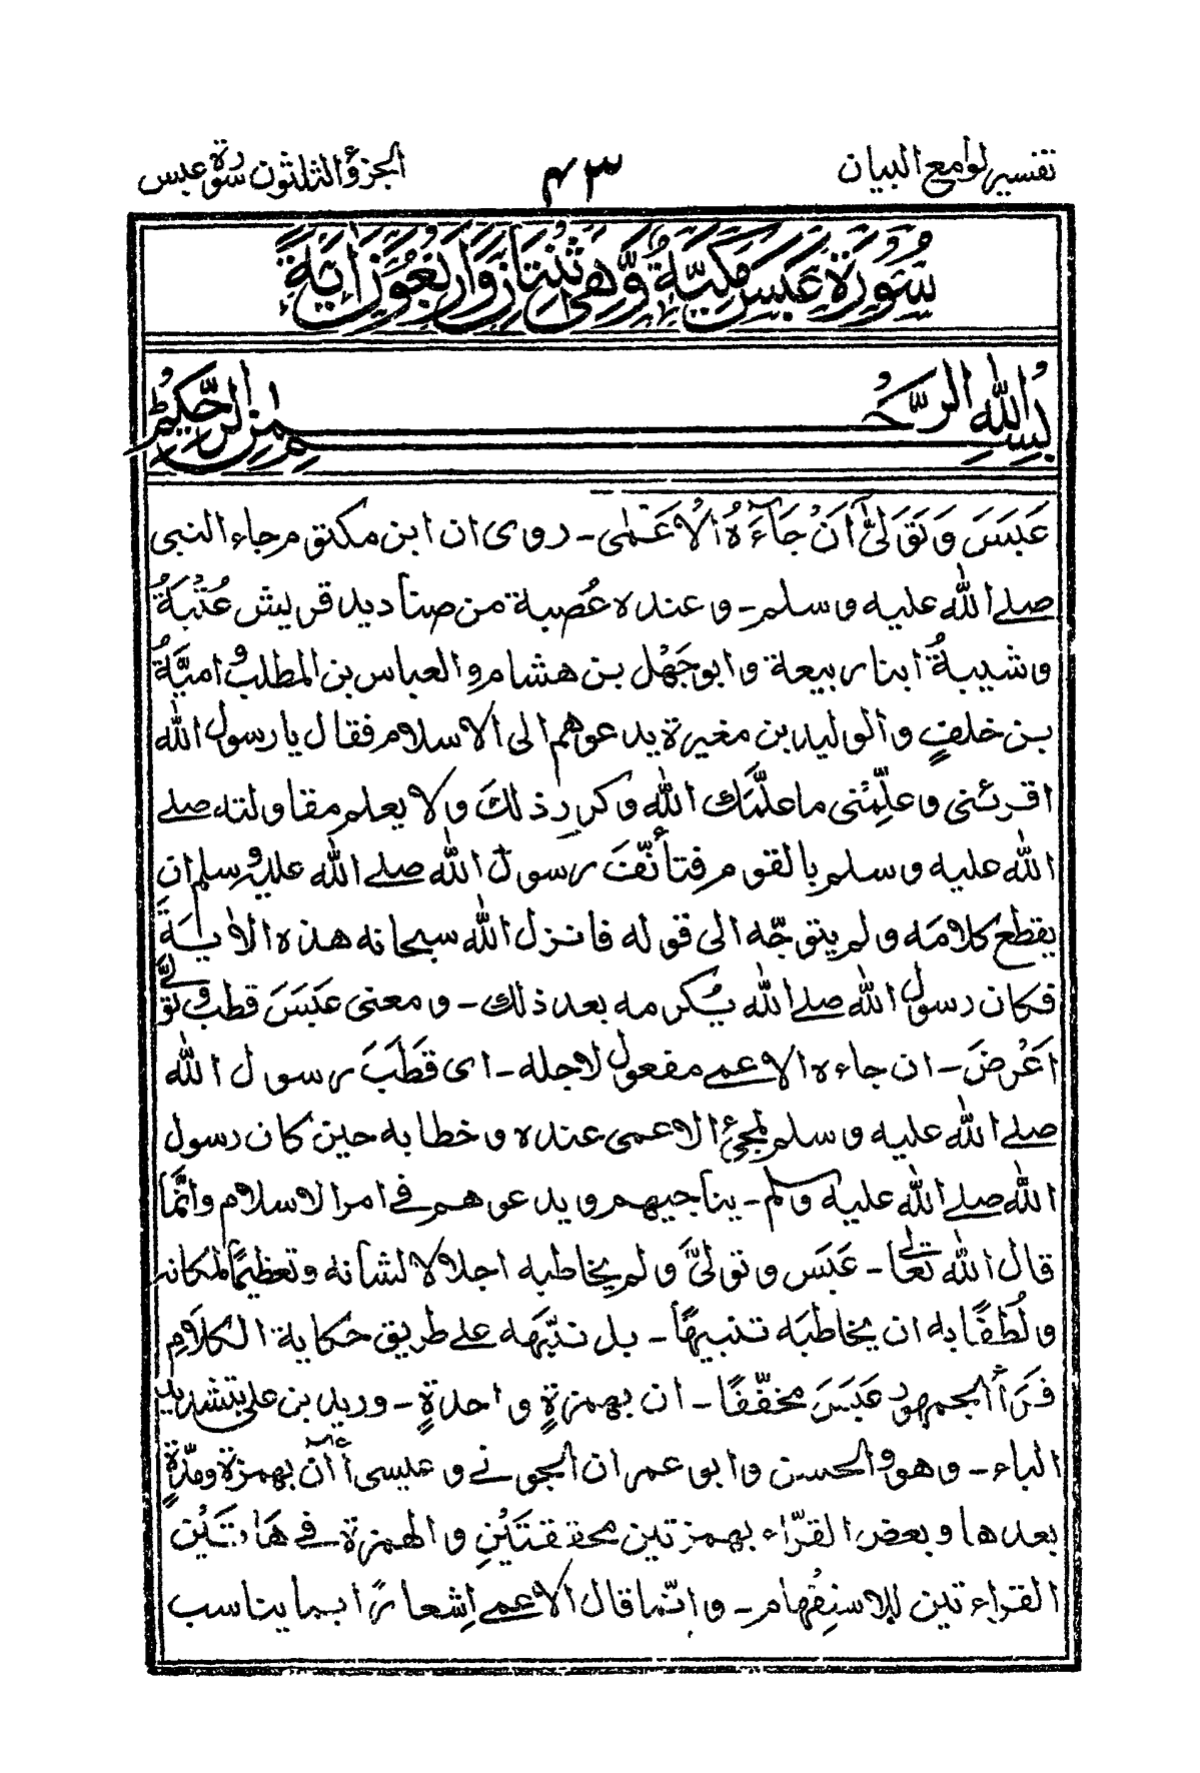 تفسير لوامع البيان
٤٣
الجزؤ الثلثون سورة عبس
سُوْرَةُ عَبَسَ مَكِّيَّةٌ وَّهِيَ ثِنْتَانِ وَاَرْبَعُوْنَ اٰيَةً
بِسْمِ اللّٰهِ الرَّحْمٰنِ الرَّحِيْمِ
عَبَسَ وَتَوَلّٰىٓ اَنْ جَآءَهُ الْاَعْمٰى ۔ روى ان ابن مكتوم جاء النبى
صلے الله عليه وسلم ۔ وعنده عُصبة من صناديد قريش عُتْبَةُ
وشيبةُ ابنا ربيعة وابوجَهْل بن هشام والعباس بن المطلب واميَّةُ
بن خلفٍ والوليد بن مغيرة يدعوهم الى الاسلام فقال يا رسول الله
اقرئنى وعلِّمْنى ما علَّمَك الله وكرر ذلكَ ولا يعلم مقاولته صلے
الله عليه وسلم بالقوم فتأنّفَ رسول الله صلے الله عليه وسلم ان
يقطع كلامَه ولم يتوجّه الى قوله فانزل الله سبحانه هذه الاٰيةَ
فكان رسول الله صلے الله يُكرمه بعد ذلك ۔ ومعنى عَبَسَ قطب وتولّٰى
اَعْرضَ ۔ ان جاءه الاعمے مفعول لاجله ۔ اى قَطَبَ رسول الله
صلے الله عليه وسلم لمجئِ الاعمى عنده وخطابه حين كان رسول
الله صلے الله عليه وسلم ۔ يناجيهم ويدعوهم فے امر الاسلام وانَّما
قال الله تعالٰى ۔ عَبَسَ وتولّٰى ولم يخاطبه اجلالا لشانه وتعظيمًا لمكانه
ولُطْفًا به ان يخاطبَه تنبيهًا ۔ بل نبّهه علے طريق حكاية الكلام
قَرَأَ الجمهور عَبَسَ مخفّفًا ۔ ان بهمزةٍ واحدةٍ ۔ وزيد بن على بتشديد
الباء ۔ وهو والحسن وابو عمران الجونے وعيسى أآن بهمزة ومدّةٍ
بعدها وبعض القرّاء بهمزتين محققتَيْنِ والهمزة فے هَاتَيْن
القراءتين للاستفهام ۔ وانّما قال الاعمے اِشعارًا بما يناسب